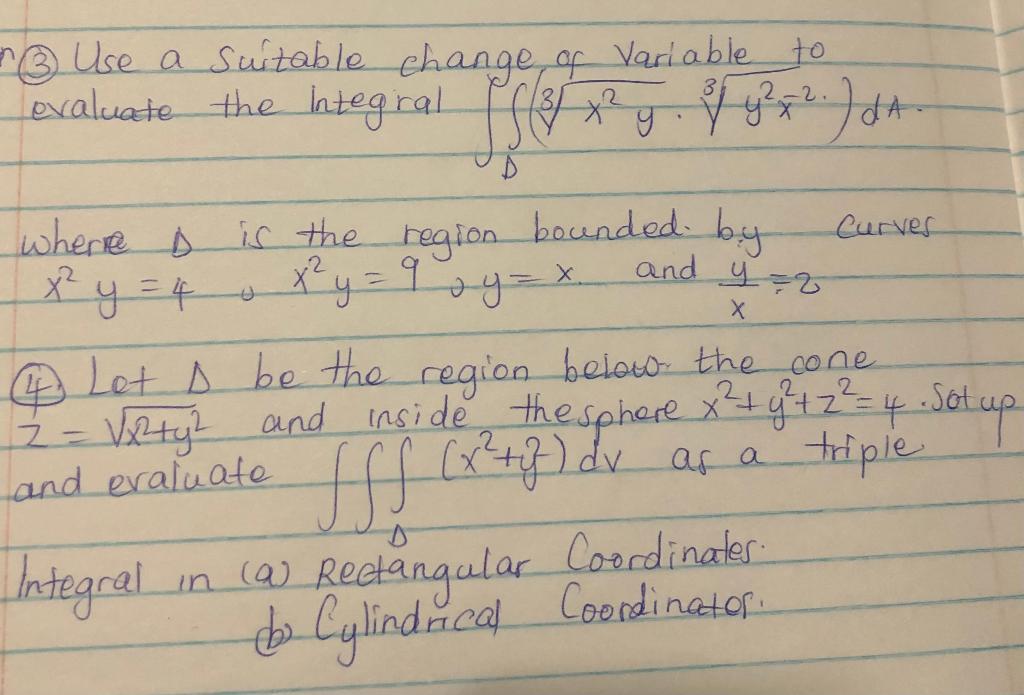 ③ Use a suitable change of Variable to
evaluate the Integral ∬_D (∛(x² y) · ∛(y² x⁻²)) dA.
where D is the region bounded by curves
x² y = 4, x² y = 9, y = x and y/x = 2
④ Let D be the region below the cone
z = √(x²+y²) and inside the sphere x²+y²+z²=4. Set up
and evaluate ∭_D (x²+y²) dv as a triple
Integral in (a) Rectangular Coordinates.
(b) Cylindrical Coordinates.